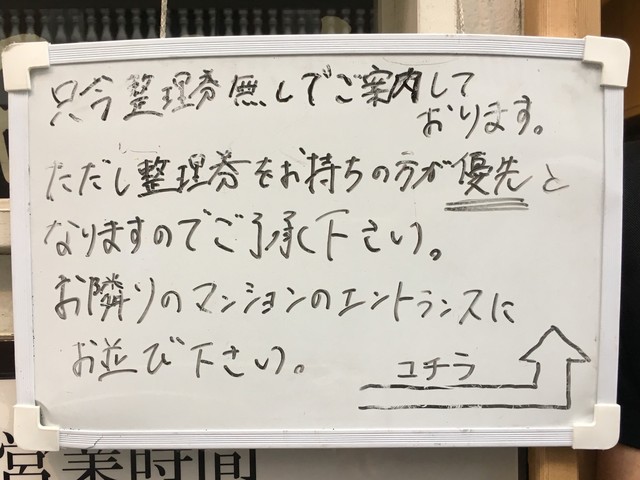 只今整理券無しでご案内して
おります。
ただし整理券をお持ちの方が優先と
なりますのでご了承下さい。
お隣りのマンションのエントランスに
お並び下さい。
コチラ
営業時間